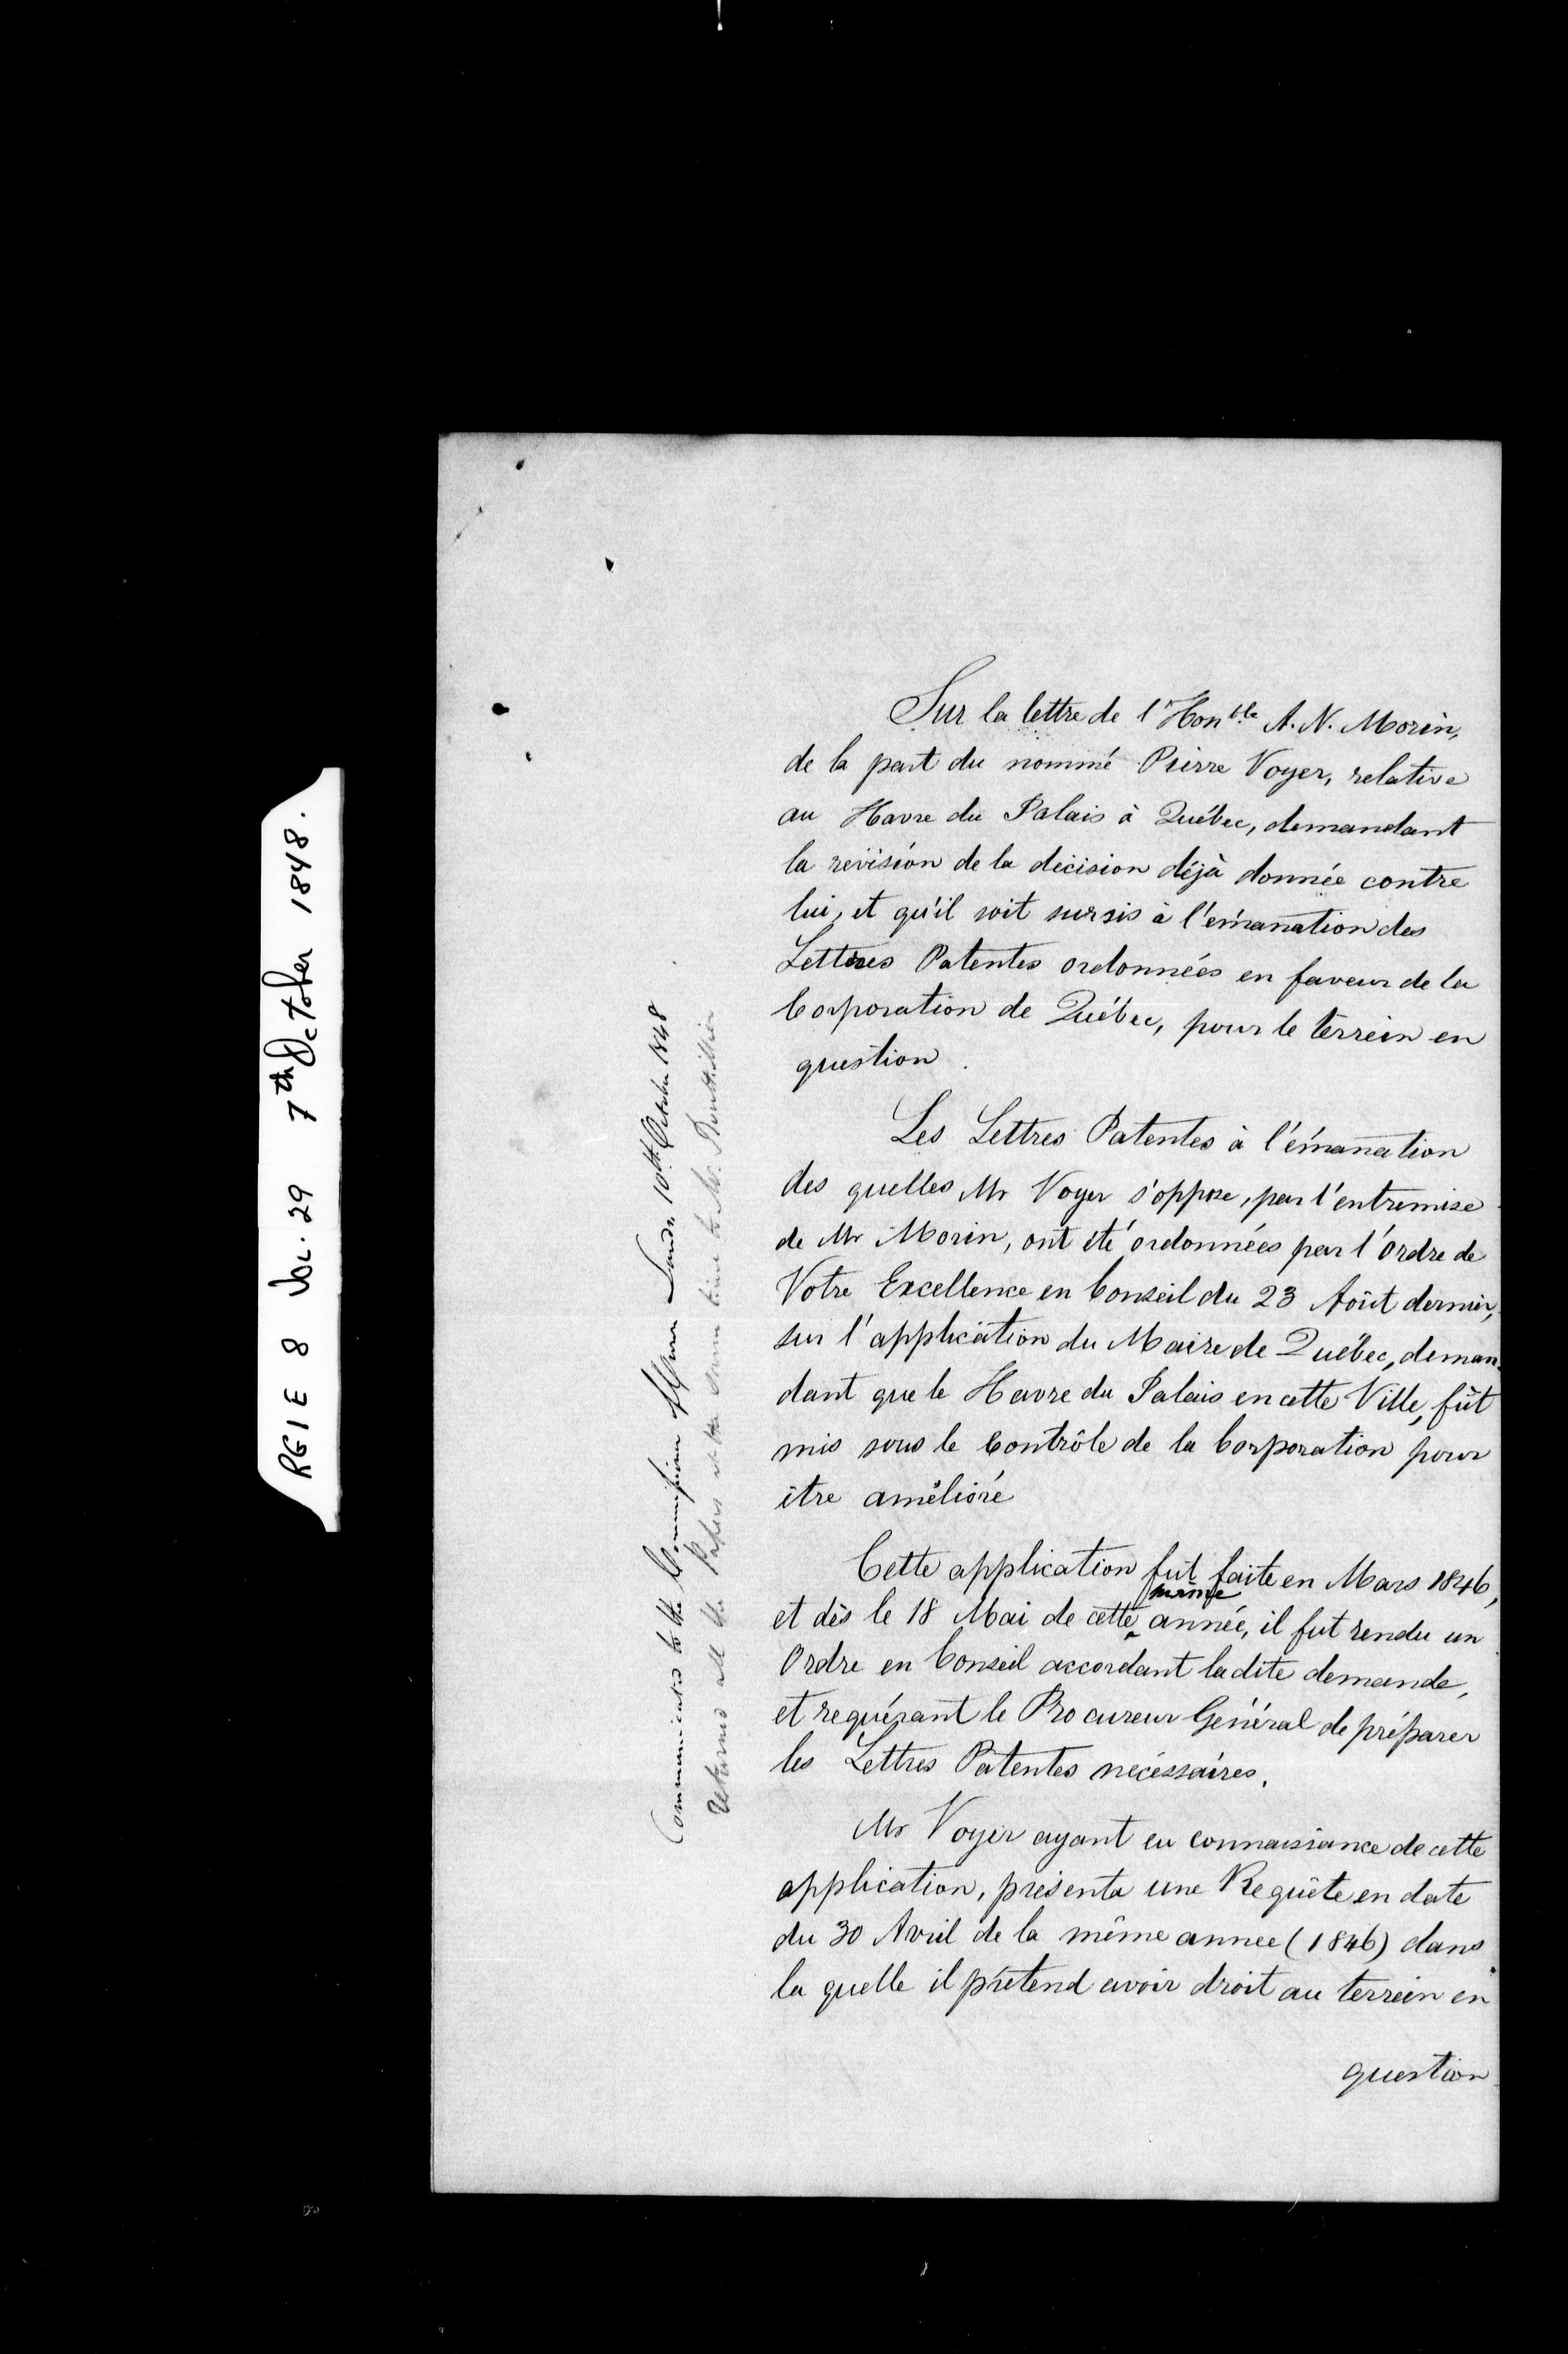 RG1 E 8 Vol. 29 7th October 1848.
Communicated to the Commissioner of Crown Lands 10th October 1848
Returned all the Papers at the same time to Mr. Bouthillier
Sur la lettre de l'Honble A. N. Morin,
de la part du nommé Pierre Voyer, relative
au Havre du Palais à Québec, demandant
la révision de la décision déjà donnée contre
lui, et qu'il soit sursis à l'émanation des
Lettres Patentes ordonnées en faveur de la
Corporation de Québec, pour le terrein en
question.
Les Lettres Patentes à l'émanation
des quelles Mr Voyer s'oppose, par l'entremise
de Mr Morin, ont été ordonnées par l'Ordre de
Votre Excellence en Conseil du 23 Août dernier,
sur l'application du Maire de Québec, deman-
dant que le Havre du Palais en cette Ville, fût
mis sous le Contrôle de la Corporation pour
être amélioré
Cette application fut faite en Mars 1846,
et dès le 18 Mai de cette même année, il fut rendu un
Ordre en Conseil accordant ladite demande,
et requérant le Procureur Général de préparer
les Lettres Patentes nécessaires.
Mr Voyer ayant eu connaissance de cette
application, présenta une Requête en date
du 30 Avril de la même annee (1846) dans
la quelle il prétend avoir droit au terrein en
question